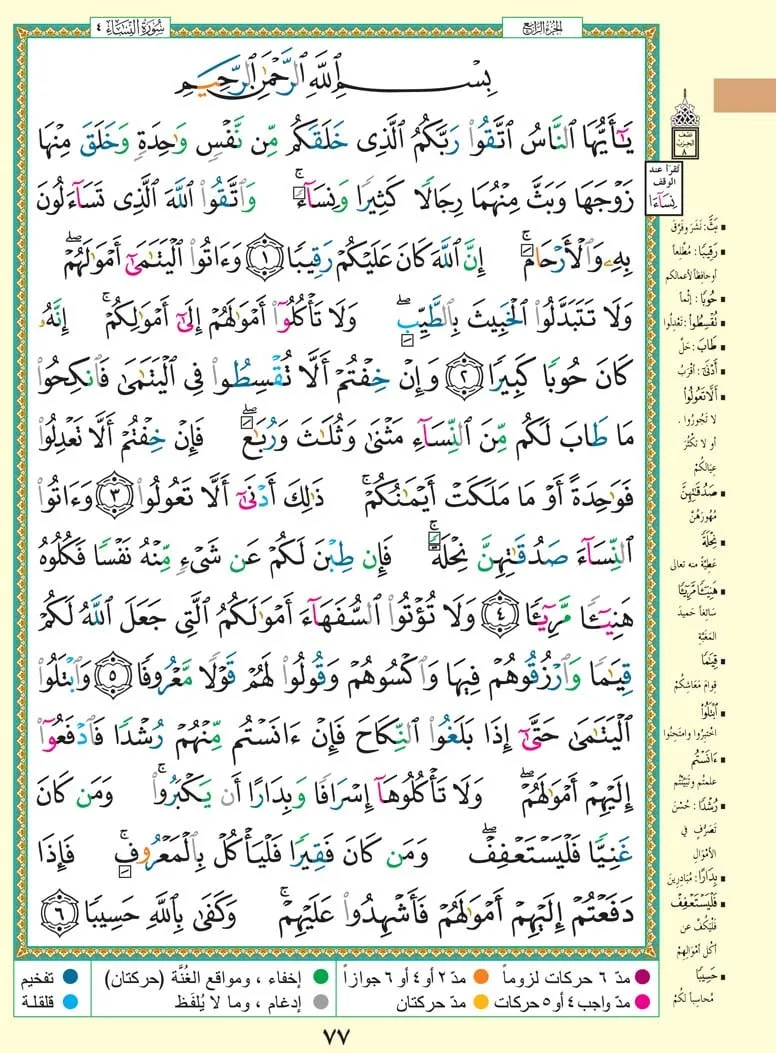 سُورَةُ النِّسَاءِ ٤
الجُزءُ الرَّابِعُ
بِسْمِ ٱللَّهِ ٱلرَّحْمَٰنِ ٱلرَّحِيمِ
يَـٰٓأَيُّهَا ٱلنَّاسُ ٱتَّقُوا۟ رَبَّكُمُ ٱلَّذِى خَلَقَكُم مِّن نَّفْسٍ وَٰحِدَةٍ وَخَلَقَ مِنْهَا
زَوْجَهَا وَبَثَّ مِنْهُمَا رِجَالًا كَثِيرًا وَنِسَآءً ۚ وَٱتَّقُوا۟ ٱللَّهَ ٱلَّذِى تَسَآءَلُونَ
بِهِۦ وَٱلْأَرْحَامَ ۚ إِنَّ ٱللَّهَ كَانَ عَلَيْكُمْ رَقِيبًا ١ وَءَاتُوا۟ ٱلْيَتَـٰمَىٰٓ أَمْوَٰلَهُمْ ۖ
وَلَا تَتَبَدَّلُوا۟ ٱلْخَبِيثَ بِٱلطَّيِّبِ ۖ وَلَا تَأْكُلُوٓا۟ أَمْوَٰلَهُمْ إِلَىٰٓ أَمْوَٰلِكُمْ ۚ إِنَّهُۥ
كَانَ حُوبًا كَبِيرًا ٢ وَإِنْ خِفْتُمْ أَلَّا تُقْسِطُوا۟ فِى ٱلْيَتَـٰمَىٰ فَٱنكِحُوا۟
مَا طَابَ لَكُم مِّنَ ٱلنِّسَآءِ مَثْنَىٰ وَثُلَـٰثَ وَرُبَـٰعَ ۖ فَإِنْ خِفْتُمْ أَلَّا تَعْدِلُوا۟
فَوَٰحِدَةً أَوْ مَا مَلَكَتْ أَيْمَـٰنُكُمْ ۚ ذَٰلِكَ أَدْنَىٰٓ أَلَّا تَعُولُوا۟ ٣ وَءَاتُوا۟
ٱلنِّسَآءَ صَدُقَـٰتِهِنَّ نِحْلَةً ۚ فَإِن طِبْنَ لَكُمْ عَن شَىْءٍ مِّنْهُ نَفْسًا فَكُلُوهُ
هَنِيٓـًٔا مَّرِيٓـًٔا ٤ وَلَا تُؤْتُوا۟ ٱلسُّفَهَآءَ أَمْوَٰلَكُمُ ٱلَّتِى جَعَلَ ٱللَّهُ لَكُمْ
قِيَـٰمًا وَٱرْزُقُوهُمْ فِيهَا وَٱكْسُوهُمْ وَقُولُوا۟ لَهُمْ قَوْلًا مَّعْرُوفًا ٥ وَٱبْتَلُوا۟
ٱلْيَتَـٰمَىٰ حَتَّىٰٓ إِذَا بَلَغُوا۟ ٱلنِّكَاحَ فَإِنْ ءَانَسْتُم مِّنْهُمْ رُشْدًا فَٱدْفَعُوٓا۟
إِلَيْهِمْ أَمْوَٰلَهُمْ ۖ وَلَا تَأْكُلُوهَآ إِسْرَافًا وَبِدَارًا أَن يَكْبَرُوا۟ ۚ وَمَن كَانَ
غَنِيًّا فَلْيَسْتَعْفِفْ ۖ وَمَن كَانَ فَقِيرًا فَلْيَأْكُلْ بِٱلْمَعْرُوفِ ۚ فَإِذَا
دَفَعْتُمْ إِلَيْهِمْ أَمْوَٰلَهُمْ فَأَشْهِدُوا۟ عَلَيْهِمْ ۚ وَكَفَىٰ بِٱللَّهِ حَسِيبًا ٦
نصف
الحزب
٨
تُقرأ عند
الوقف
نِسَاءَا
بَثَّ: نَشَرَ وَفَرَّقَ
رَقِيبًا: مُطَّلِعاً
أو حافظاً لأعمالكم
حُوبًا: إثماً
تُقْسِطُوا: تَعْدِلُوا
طَابَ: حَلَّ
أَدْنَىٰ: أقْرَبُ
أَلَّا تَعُولُوا
لا تَجُورُوا.
أو لا تَكْثُرَ
عِيَالُكُمْ
صَدُقَـٰتِهِنَّ
مُهُورَهُنَّ
نِحْلَةً
عَطِيَّةً منه تعالى
هَنِيٓـًٔا مَّرِيٓـًٔا
سَائِغاً حَمِيدَ
المَغَبَّةِ
قِيَـٰمًا
قِوامَ مَعَاشِكُمْ
ٱبْتَلُوا
اخْتَبِرُوا وامتَحِنُوا
ءَانَسْتُم
علمتُم وتَبَيَّنْتُم
رُشْدًا: حُسْنَ
تَصَرُّفٍ في
الأمْوَالِ
بِدَارًا: مُبَادِرِينَ
فَلْيَسْتَعْفِفْ
فَلْيَكُفَّ عن
أكل أموَالِهِمْ
حَسِيبًا
مُحاسِباً لَكُمْ
مدّ ٦ حركات لزوماً مدّ ٢ أو ٤ أو ٦ جوازاً إخفاء، ومواقع الغُنَّة (حركتان) تفخيم
مدّ واجب ٤ أو ٥ حركات مدّ حركتان إدغام، وما لا يُلفَظ قلقلة
٧٧